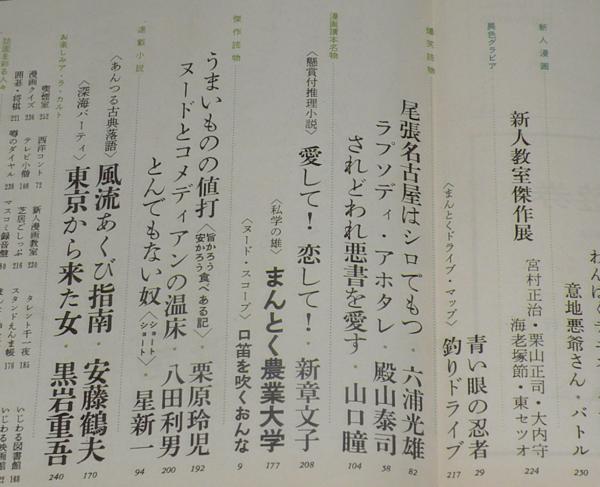 わんぱく
意地悪爺さん・バトル
230
新人漫画
新人教室傑作展
宮村正治・栗山正司・大内守
海老塚節・東セツオ
224
異色グラビア
青い眼の忍者
29
〈まんとくドライブ・マップ〉
釣りドライブ
217
爆笑読物
尾張名古屋はシロでもつ・六浦光雄
82
ラプソディ・アホタレ・殿山泰司
58
されどわれ悪書を愛す・山口瞳
104
漫画讀本名物
〈懸賞付推理小説〉愛して!恋して!・新章文子
208
〈私学の雄〉まんとく農業大学
177
〈ヌード・スコープ〉口笛を吹くおんな
9
傑作読物
うまいものの値打〈旨かろう安かろう食べある記〉・栗原玲児
192
ヌードとコメディアンの温床・八田利男
200
とんでもない奴〈ショート・ショート〉・星新一
94
連載小説
〈あんつる古典落語〉風流あくび指南・安藤鶴夫
170
〈深海パーティ〉東京から来た女・黒岩重吾
240
お楽しみア・ラ・カルト
喫煙室 252
漫画クイズ 236
囲碁・将棋 221
西洋コント 72
テレビ小僧 168
噂のダイヤル
新人漫画教室 230
芝居ごしっぷ 216
マスコミ録音盤
タレント千一夜 185
スタンドえんま帳 176
いじわる図書館
いじわる映画館
誌面を彩る人々